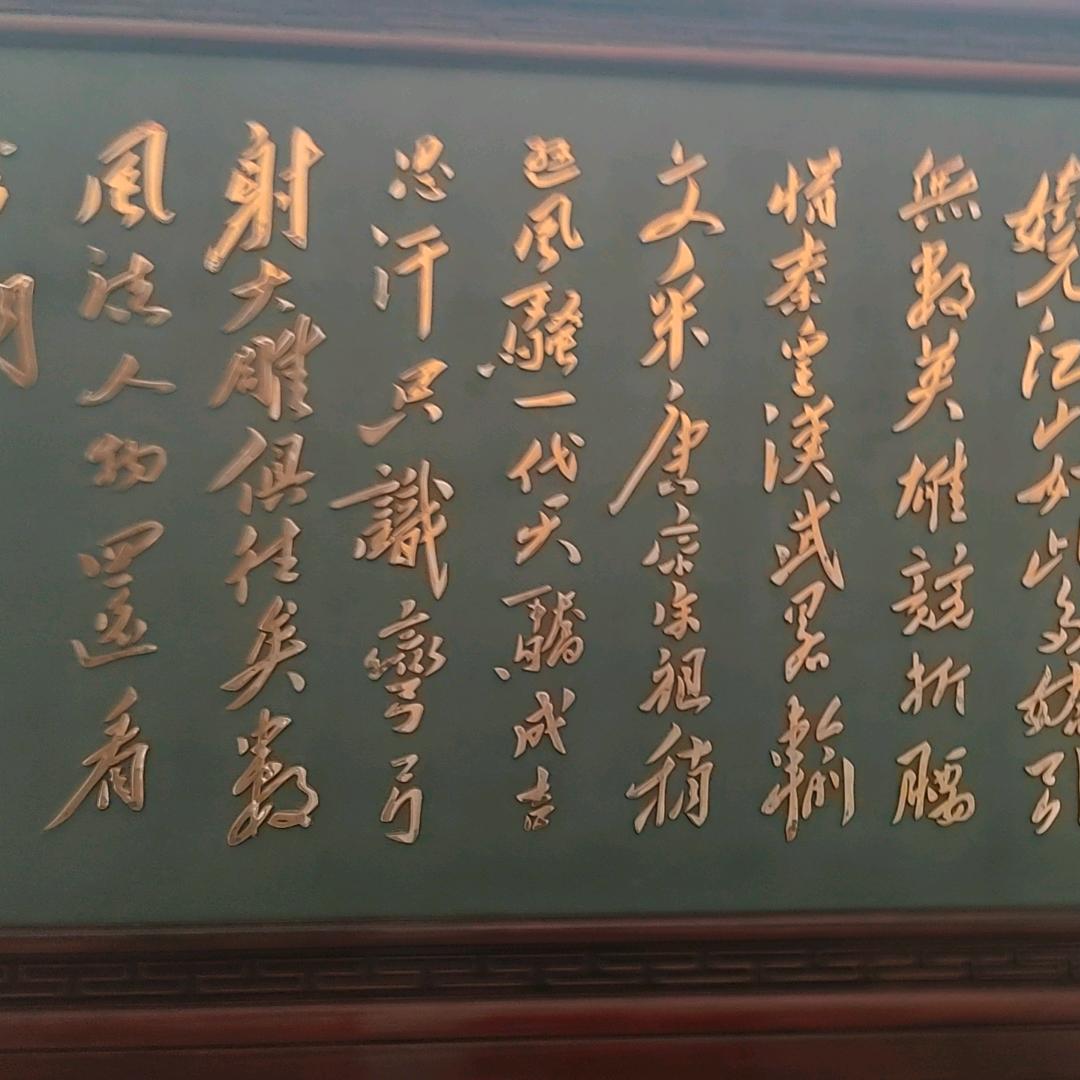 嬈江山如此多嬌引
無數英雄競折腰
惜秦皇漢武畧輸
文采唐宗宋祖稍
遜風騷一代天驕成吉
思汗只識彎弓
射大雕俱往矣數
風流人物還看